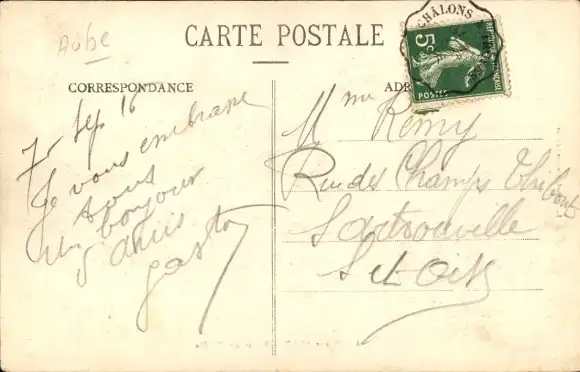 Aube
CARTE POSTALE
CHÂLONS
5c
POSTES
CORRESPONDANCE
ADR
7 Sep 16
Je vous embrasse
tous
un bonjour
d'amis
Gaston
Mme Remy
Rue des Champs Thibout
Sartrouville
S et Oise